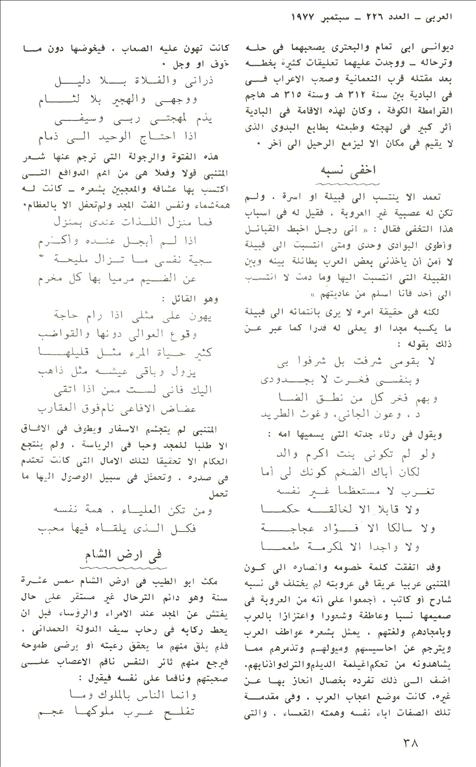 العربى – العدد ٢٢٦ – سبتمبر ١٩٧٧
ديوانى ابى تمام والبحترى يصحبهما فى حله
وترحاله – ووجدت عليهما تعليقات كثيرة بخطه
بعد مقتله قرب النعمانية وصحب الاعراب فى
فى البادية بين سنة ٣١٢ هـ وسنة ٣١٥ هـ هاجم
القرامطة الكوفة ، وكان لهذه الاقامة فى البادية
أثر كبير فى لهجته وطبعته بطابع البدوى الذى
لا يقيم فى مكان الا ليزمع الرحيل الى آخر ٠
اخفى نسبه
تعمد الا ينتسب الى قبيلة او اسرة ، ولم
تكن له عصبية غير العروبة ، فقيل له فى اسباب
هذا التخفى فقال : « انى رجل اخبط القبائل
وأطوى البوادى وحدى ومتى انتسبت الى قبيلة
لا آمن أن يأخذنى بعض العرب بطائلة بينه وبين
القبيلة التى انتسبت اليها وما دمت لا انتسب
الى احد فأنا اسلم من عاديتهم »
لكنه فى حقيقة امره لا يرى بانتمائه الى قبيلة
ما يكسبه مجدا او يعلى له قدرا كما عبر عن
ذلك بقوله :
لا بقومى شرفت بل شرفوا بى
وبنفسى فخرت لا بجدودى
وبهم فخر كل من نطق الضا
د ، وعون الجانى، وغوث الطريد
ويقول فى رثاء جدته التى يسميها امه :
ولو لم تكونى بنت اكرم والد
لكان أباك الضخم كونك لى أما
تغرب لا مستعظما غير نفسه
ولا قابلا الا لخالقه حكما
ولا سالكا الا فؤاد عجاجة
ولا واجدا الا لمكرمة طعما
وقد اتفقت كلمة خصومه وانصاره الى كون
المتنبى عربيا عريقا فى عروبته لم يختلف فى نسبه
شارح أو كاتب ، اجمعوا على أنه من العروبة فى
صميمها نسبا وعاطفة وشعورا واعتزازا بالعرب
وبامجادهم ولغتهم ، يمثل بشعره عواطف العرب
ويترجم عن احاسيسهم وميولهم وتذمرهم مما
يشاهدونه من تحكم اغيلمة الديلم والترك واذنابهم،
اضف الى ذلك تفرده بخصال انحاز بها عن
غيره، كانت موضع اعجاب العرب ، وفى مقدمة
تلك الصفات اباء نفسه وهمته القعساء ، والتى
كانت تهون عليه الصعاب ، فيخوضها دون ما
خوف او وجل ٠
ذرانى والفلاة بلا دليل
ووجهى والهجير بلا لثام
يذم لمهجتى ربى وسيفى
اذا احتاج الوحيد الى ذمام
هذه الفتوة والرجولة التى ترجم عنها شعر
المتنبى قولا وفعلا هى من اهم الدوافع التى
اكتسب بها عشاقه والمعجبين بشعره – كانت له
همة شماء ونفس الفت المجد ولم تحفل الا بالعظام٠
فما منزل اللذات عندى بمنزل
اذا لم أبجل عنده وأكرم
سجية نفسى ما تزال مليحة "
عن الضيم مرميا بها كل مخرم
وهو القائل :
يهون على مثلى اذا رام حاجة
وقوع العوالى دونها والقواضب
كثير حياة المرء مثل قليلها
يزول وباقى عيشه مثل ذاهب
اليك فانى لست ممن اذا اتقى
عضاض الافاعى نام فوق العقارب
المتنبى لم يتجشم الاسفار ويطوف فى الآفاق
الا طلبا للمجد وحبا فى الرياسة ، ولم ينتجع
الحكام الا تحقيقا لتلك الآمال التى كانت تحتدم
فى صدره ، وتحمل فى سبيل الوصول اليها ما
تحمل
ومن تكن العلياء ، همة نفسه
فكل الذى يلقاه فيها محبب
فى ارض الشام
مكث ابو الطيب فى ارض الشام خمس عشرة
سنة وهو دائم الترحال غير مستقر على حال
يفتش عن المجد عند الامراء والروساء، قبل ان
يحط ركابه فى رحاب سيف الدولة الحمدانى ،
فلم يلق منهم ما يحقق رغبته أو يرضى طموحه
فيرجع منهم ثائر النفس ناقم الاعصاب على
صحبتهم وناقما على نفسه فيقول :
وانما الناس بالملوك وما
تفلح عرب ملوكها عجم
٣٨